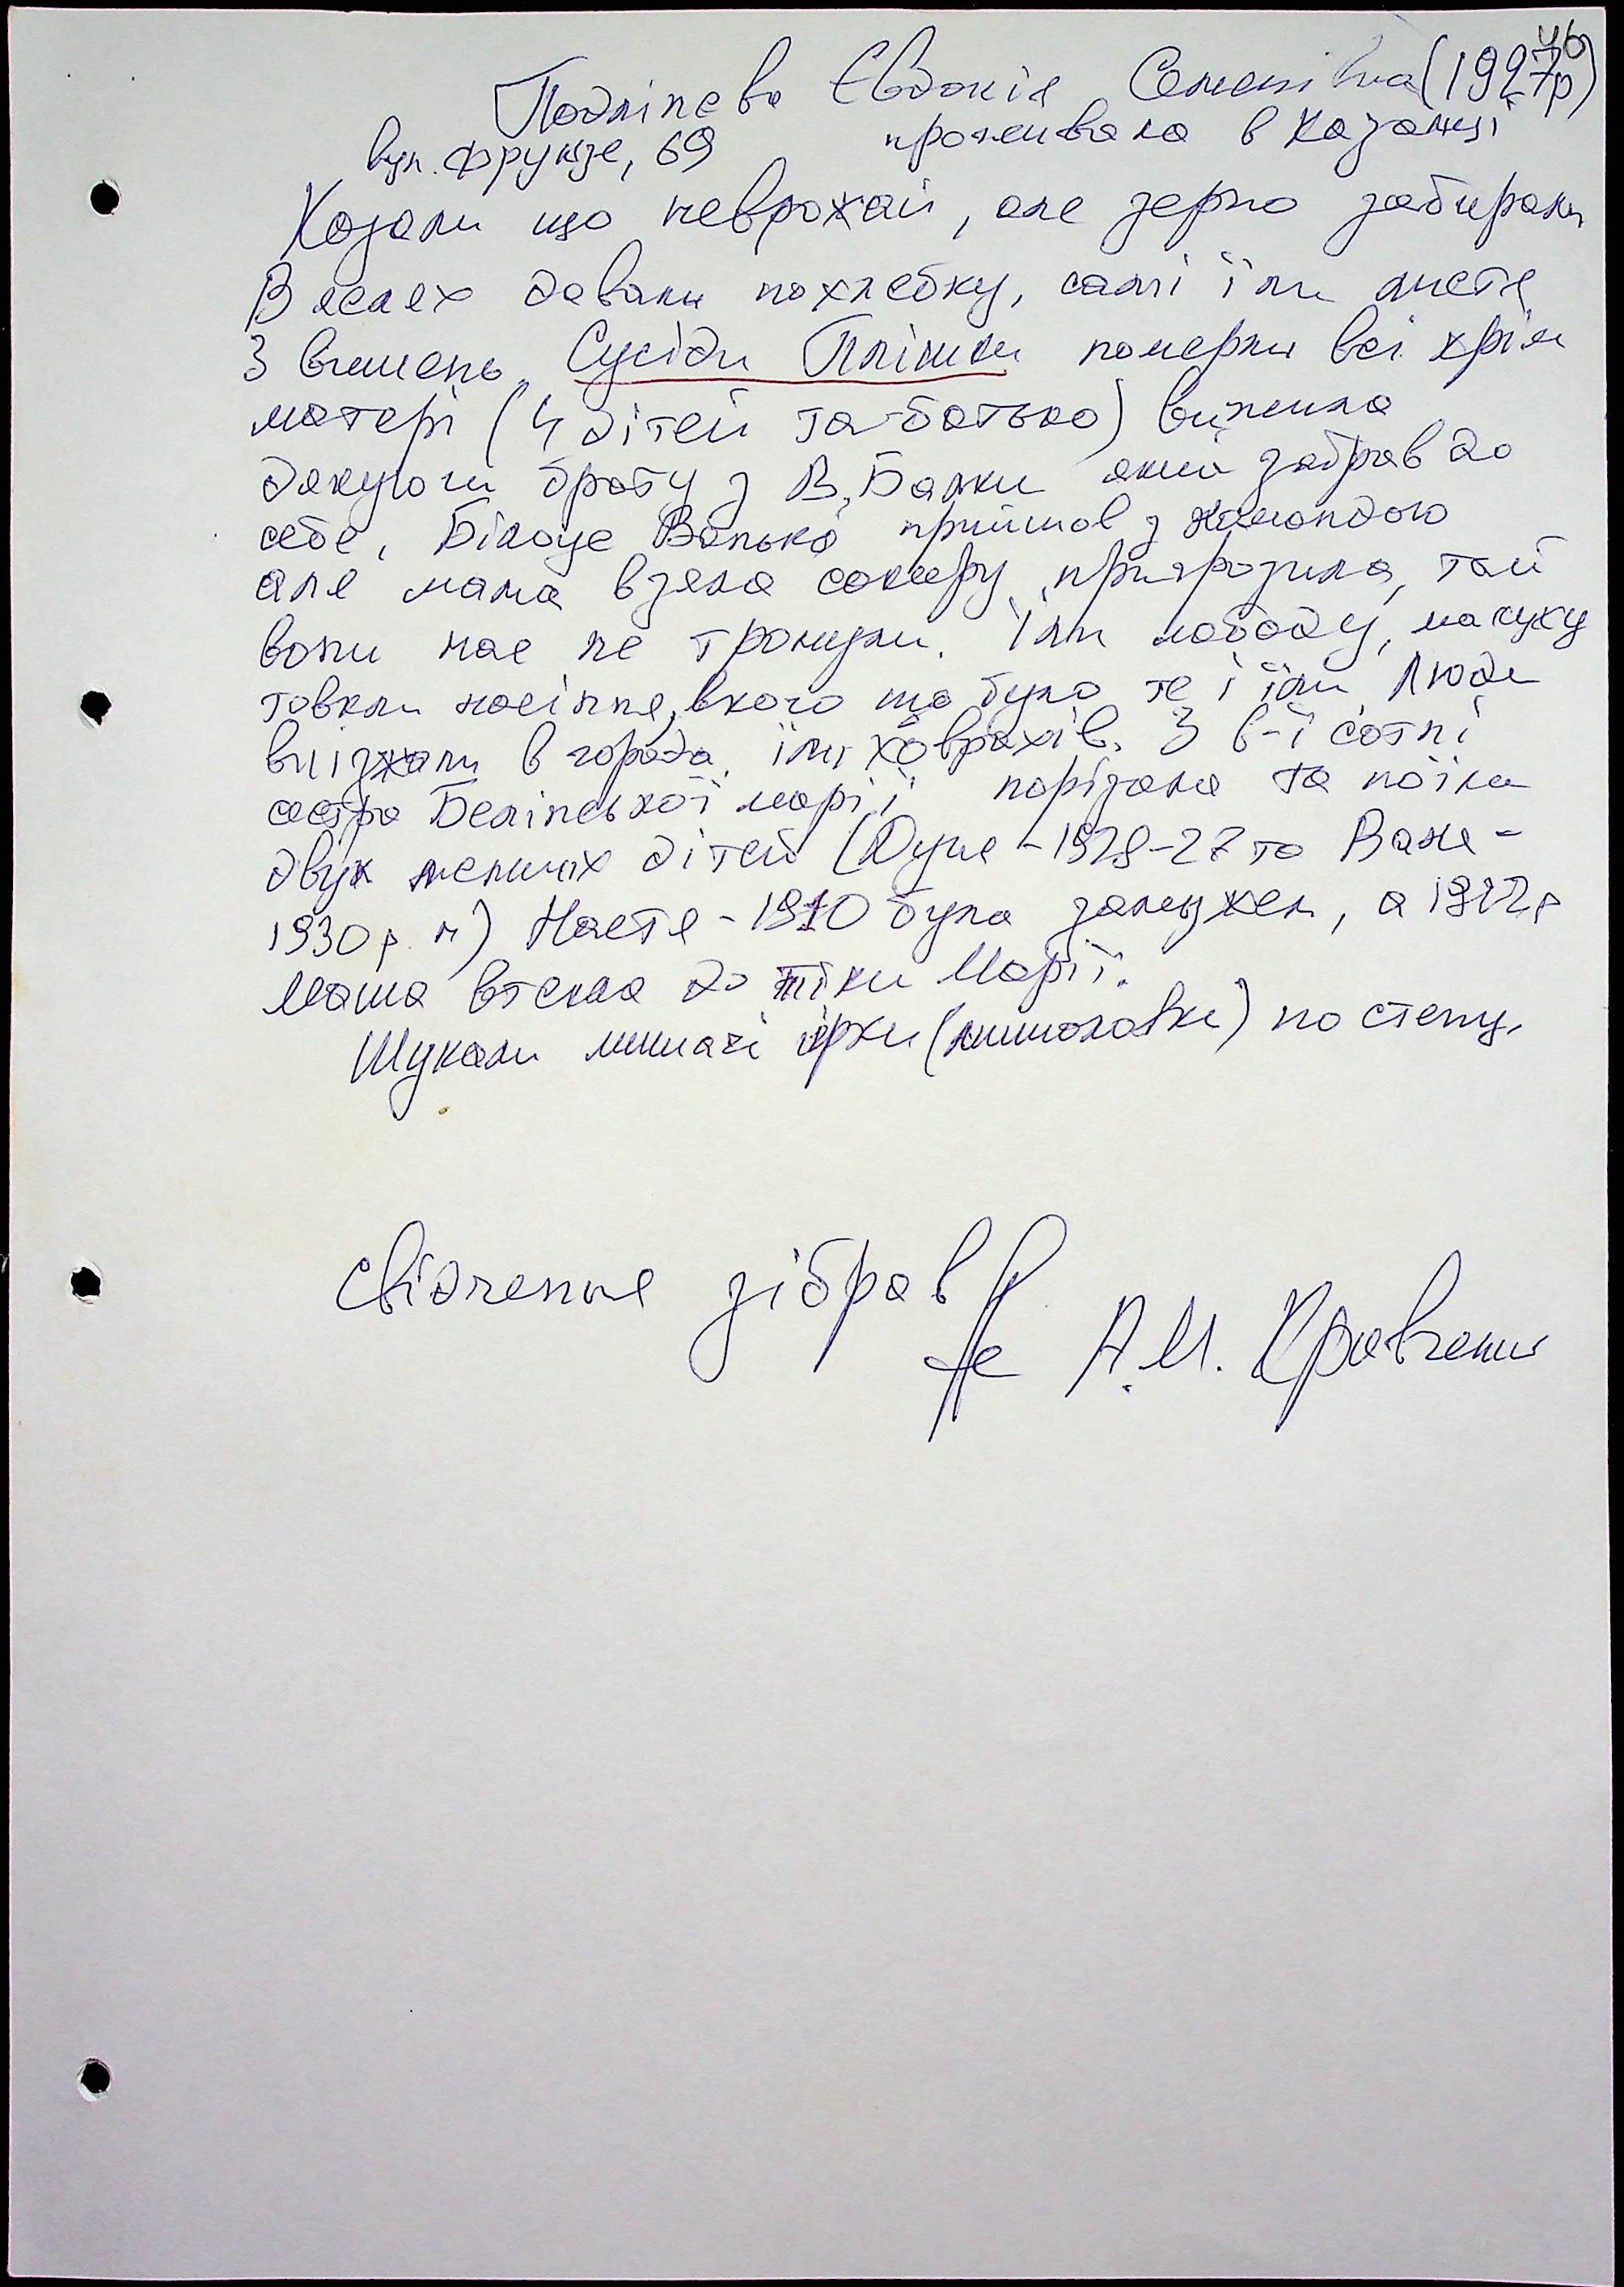 46
Подліпєва Євдокія Семенівна (1927р)
вул. Фрунзе, 69 проживала в Казанці
Казали що неврожай, але зерно забирали
В яслях давали похлебку, самі їли листя
З вишень. Сусіди Плішки померли всі крім
матері (4 дітей та батько) вижила
дякуючи брату з В. Балки який забрав до
себе, Білоус Ванько прийшов з командою
але мама взяла сокиру пригрозила, той
вони нас не тронули. Їли лободу, макуху
товкли насіння, в кого що було те і їли Люди
виїзжали в города, їли ховрахів. З 6-ї сотні
сестра Белінської марії порізала та поїла
двух менших дітей (Дуня - 1928-27 та Ваня -
1930 р. н) Настя - 1910 була замужем, а 1922р
Маша втекла до тітки Марії.
Шукали мишачі нірки (мишоловки) по степу.
Свідчення зібрав А.М. Кравченко